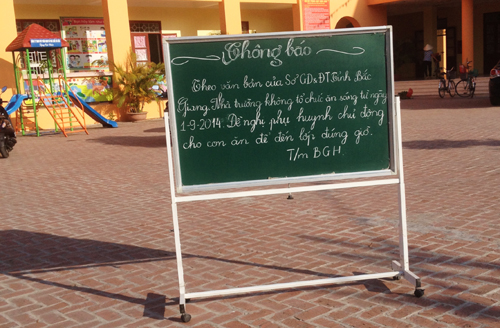 Thông báo
Theo văn bản của Sở GD&ĐT tỉnh Bắc
Giang. Nhà trường không tổ chức ăn sáng từ ngày
1-9-2014. Đề nghị phụ huynh chủ động
cho con ăn để đến lớp đúng giờ.
T/m BGH